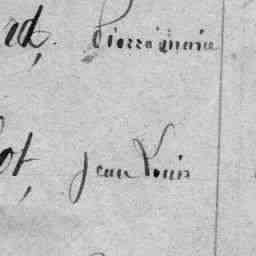 ed, Pierre marie
ot, Jean Louis